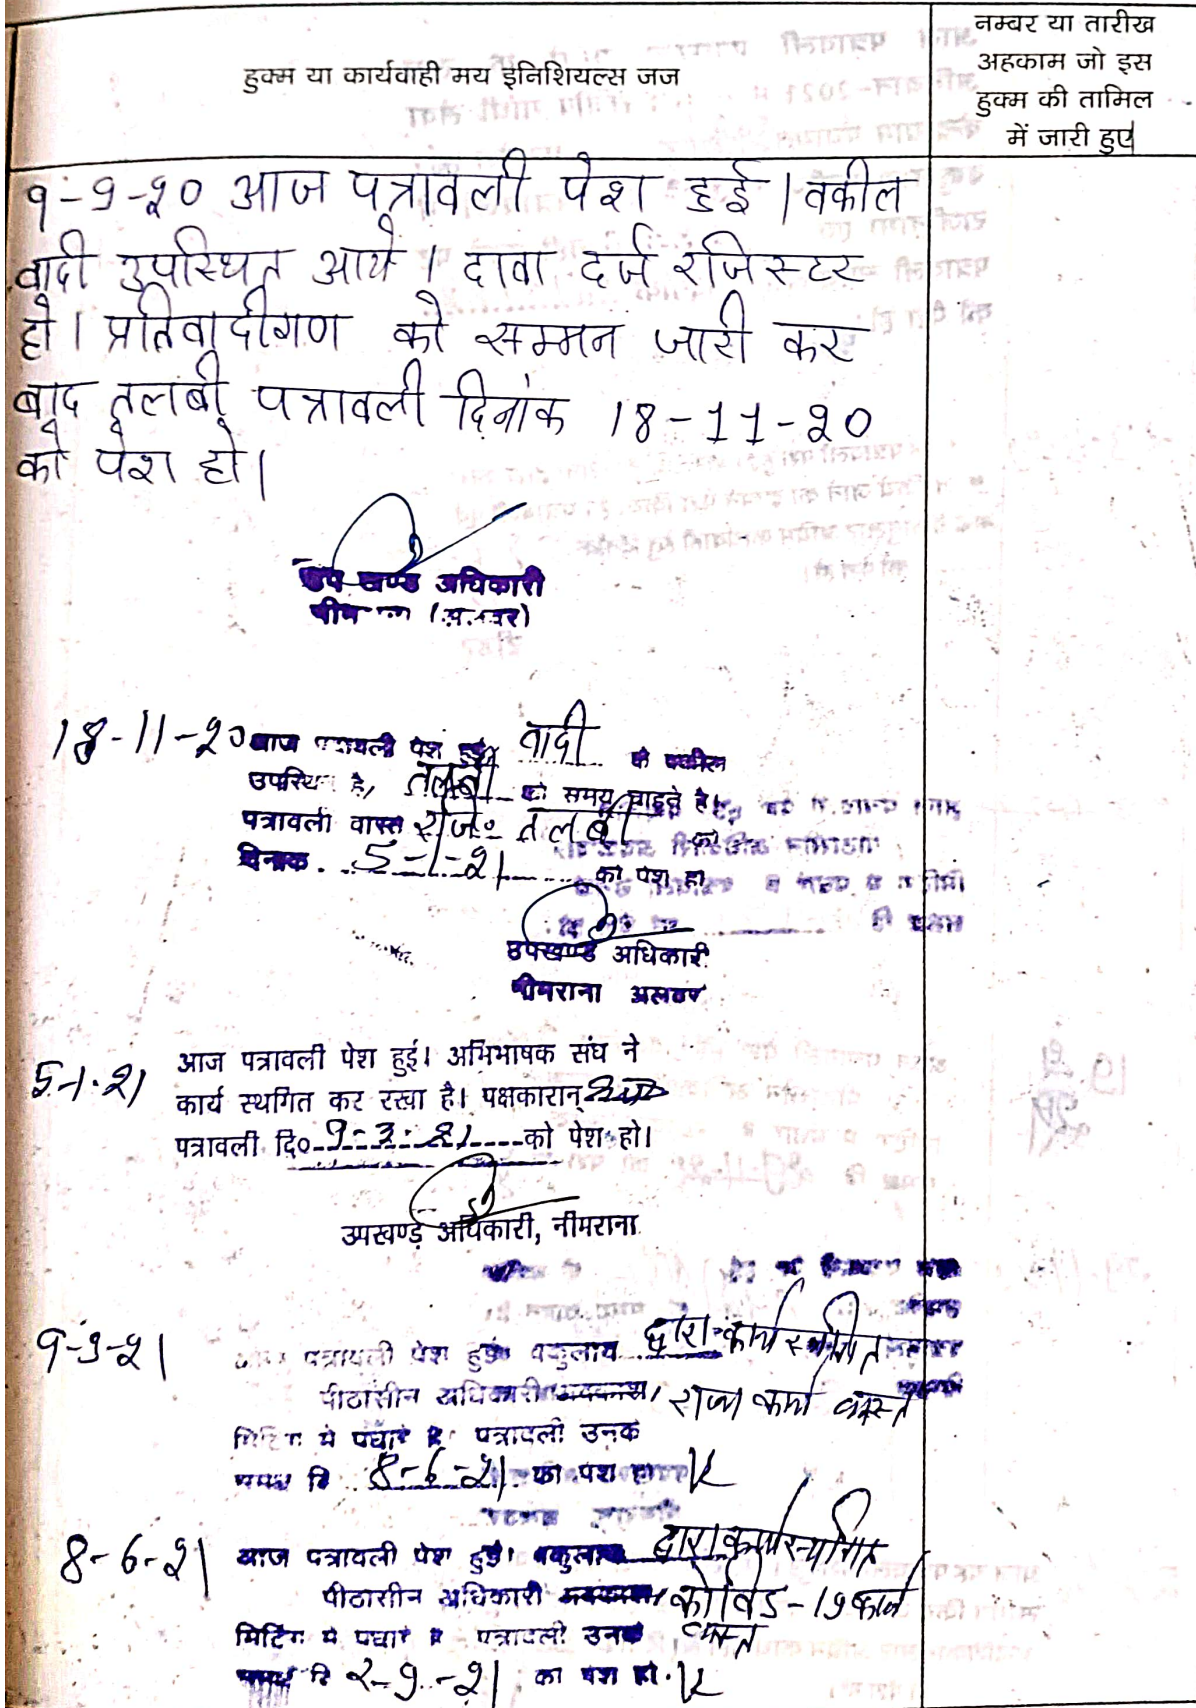 हुक्म या कार्यवाही मय इनिशियल्स जज
नम्बर या तारीख
अहकाम जो इस
हुक्म की तामिल
में जारी हुए
9-9-20 आज पत्रावली पेश हुई । वकील
वादी उपस्थित आये । दावा दर्ज रजिस्टर
हो । प्रतिवादीगण को सम्मन जारी कर
बाद तलबी पत्रावली दिनांक 18-11-20
को पेश हो ।
उप खण्ड अधिकारी
18-11-20 आज पत्रावली पेश हुई वादी के वकील
उपस्थि है, तलबी को समय चाहते है।
पत्रावली वास्ते तलबी
दिनांक 5-1-21 को पेश हो
उपखण्ड अधिकारी
नीमराना अलवर
5-1-21 आज पत्रावली पेश हुई। अभिभाषक संघ ने
कार्य स्थगित कर रखा है। पक्षकारान्
पत्रावली दि० 9-3-21 को पेश हो।
उपखण्ड अधिकारी, नीमराना
9-3-21 आज पत्रावली पेश हुई। वकुलाय द्वारा कार्य स्थगित
पीठासीन अधिकारी अवकाश, राज्य कार्य व्यस्त
मिटिंग मे पधारे है पत्रावली उनके
समक्ष दि 8-6-21 को पेश हो
8-6-21 आज पत्रावली पेश हुई। वकुलाय द्वारा कार्य स्थगित
पीठासीन अधिकारी अवकाश, कोविड-19 कार्य
मिटिंग मे पधारे है पत्रावली उनके व्यस्त
समक्ष दि 2-9-21 को पेश हो